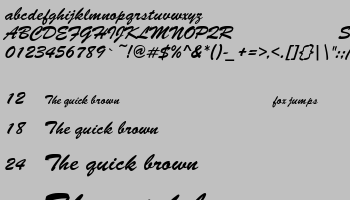 abcdefghijklmnopqrstuvwxyz
ABCDEFGHIJKLMNOPQR S
0123456789`~!@#$%^&*()-_+=>,<.[]{}|\":;/
12 The quick brown fox jumps
18 The quick brown
24 The quick brown